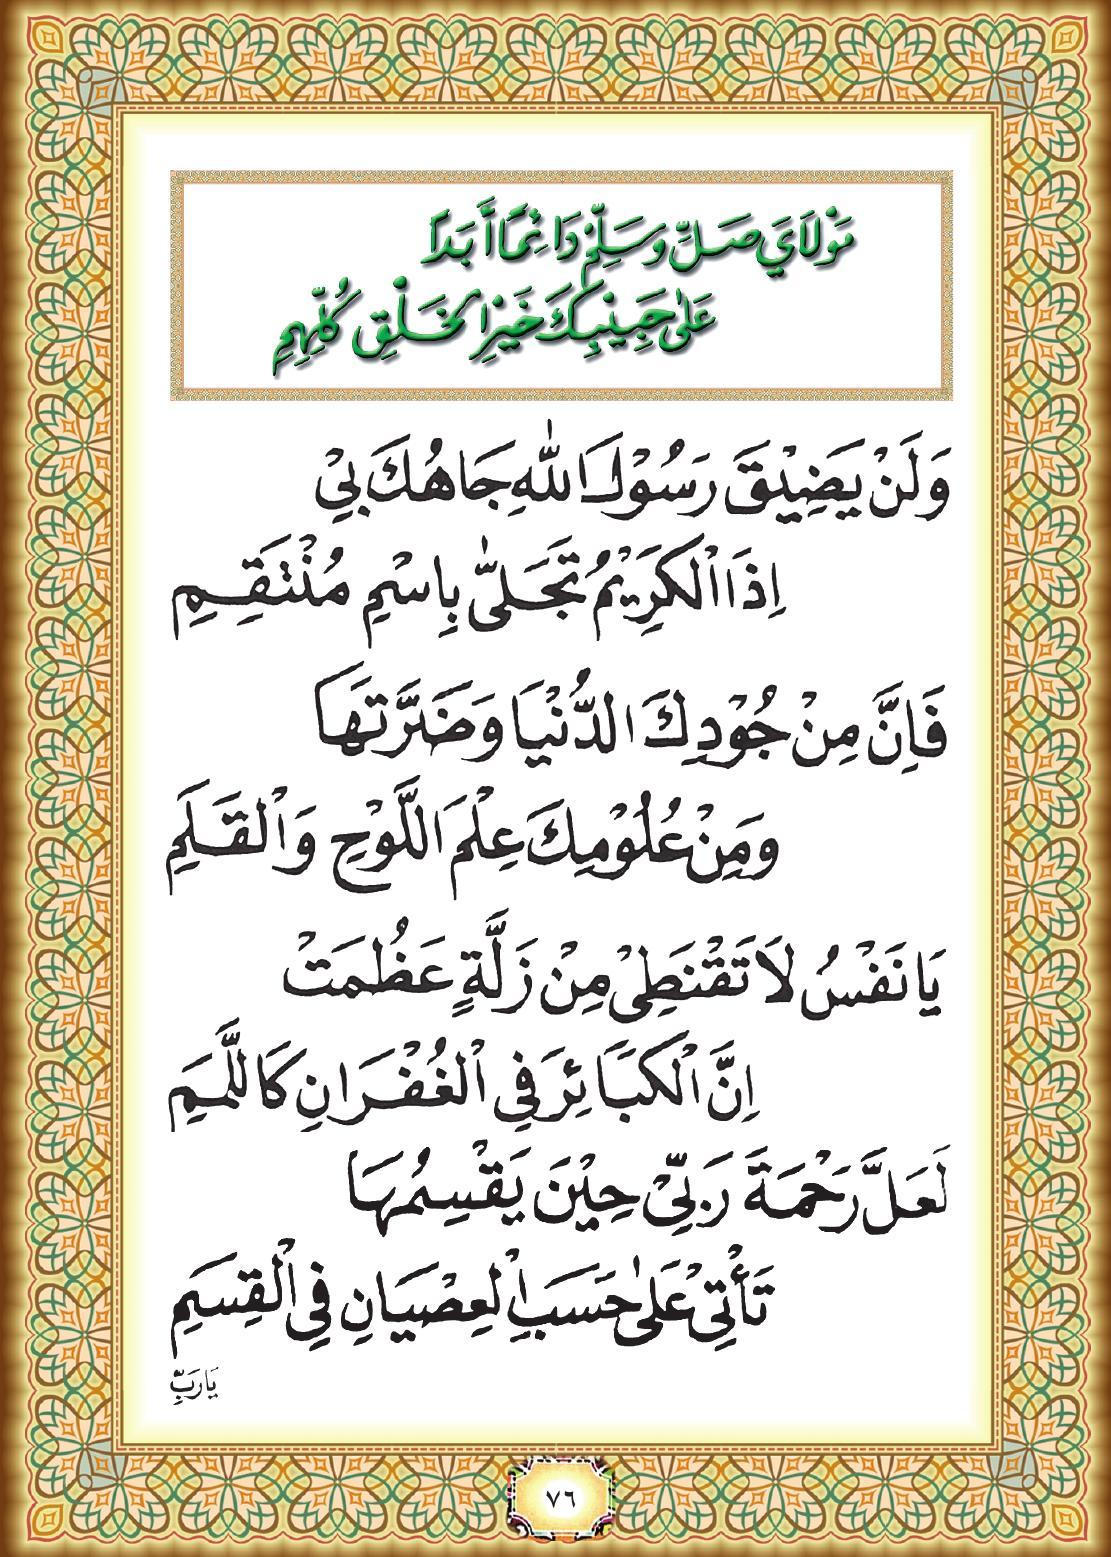 مَوْلَايَ صَلِّ وَسَلِّمْ دَائِمًا أَبَدًا
عَلٰى حَبِيْبِكَ خَيْرِ الْخَلْقِ كُلِّهِمِ
وَلَنْ يَضِيْقَ رَسُوْلَ اللّٰهِ جَاهُكَ بِيْ
اِذَا الْكَرِيْمُ تَجَلّٰى بِاسْمِ مُنْتَقِمِ
فَاِنَّ مِنْ جُوْدِكَ الدُّنْيَا وَضَرَّتَهَا
وَمِنْ عُلُوْمِكَ عِلْمَ اللَّوْحِ وَالْقَلَمِ
يَا نَفْسُ لَا تَقْنَطِيْ مِنْ زَلَّةٍ عَظُمَتْ
اِنَّ الْكَبَائِرَ فِي الْغُفْرَانِ كَاللَّمَمِ
لَعَلَّ رَحْمَةَ رَبِّيْ حِيْنَ يَقْسِمُهَا
تَأْتِيْ عَلٰى حَسَبِ الْعِصْيَانِ فِي الْقِسَمِ
يَارَبِّ
٧٦